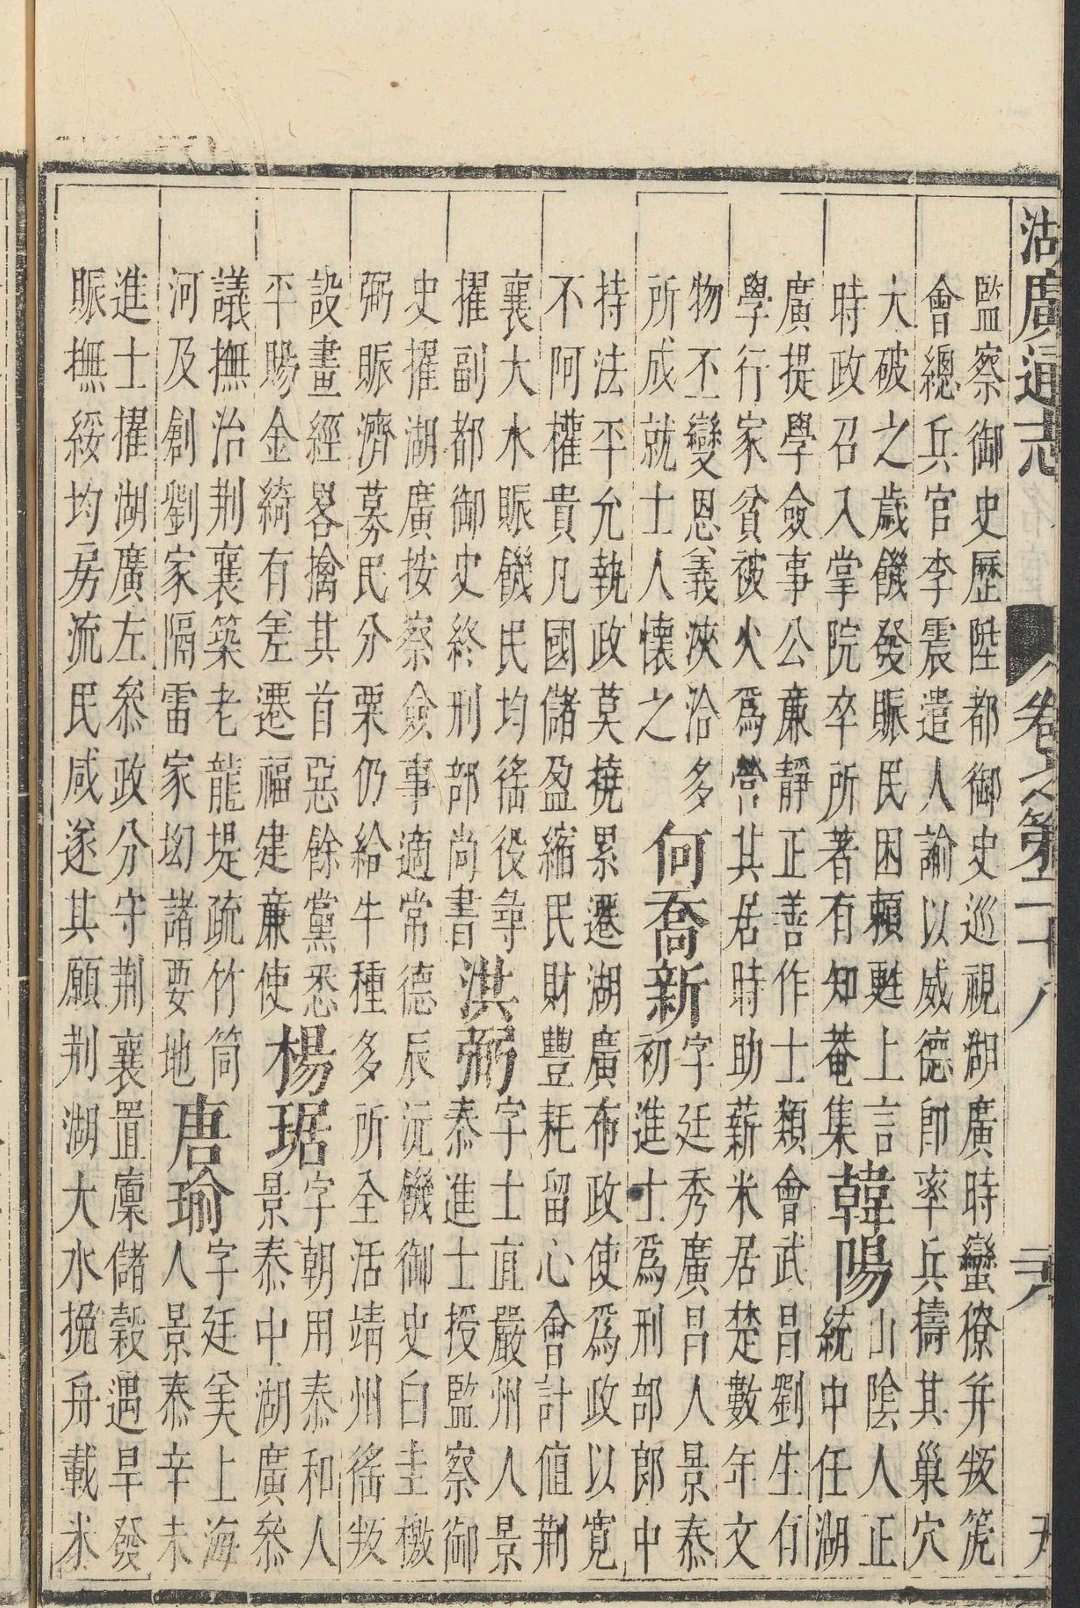 湖廣通志 卷之第二十八
監察御史歷陞都御史巡視湖廣時蠻獠并叛箎
會總兵官李震遣人諭以威德即率兵擣其巢穴
大破之歲饑發賑民困賴甦上言
時政召入掌院卒所著有知菴集
韓陽
山陰人正
統中任湖
廣提學僉事公廉靜正善作士類會武昌劉生有
學行家貧被火為營其居時助薪米居楚數年文
物丕變恩義浹洽多
所成就士人懷之
何喬新
字廷秀廣昌人景泰
初進士為刑部郎中
持法平允執政莫撓累遷湖廣布政使為政以寬
不阿權貴凡國儲盈縮民財豐耗留心會計值荆
襄大水賑饑民均徭役尋
擢副都御史終刑部尚書
洪弼
字士直嚴州人景
泰進士授監察御
史擢湖廣按察僉事適常德辰沅饑御史白圭檄
弼賑濟募民分粟仍給牛種多所全活靖州徭叛
設畫經畧擒其首惡餘黨悉
平賜金綺有差遷福建廉使
楊琚
字朝用泰和人
景泰中湖廣叅
議撫治荆襄築老龍堤疏竹筒
河及創劉家隔雷家㘭諸要地
唐瑜
字廷美上海
人景泰辛未
進士擢湖廣左叅政分守荆襄置廪儲穀遇旱發
賑撫綏均房流民咸遂其願荆湖大水挽舟載米